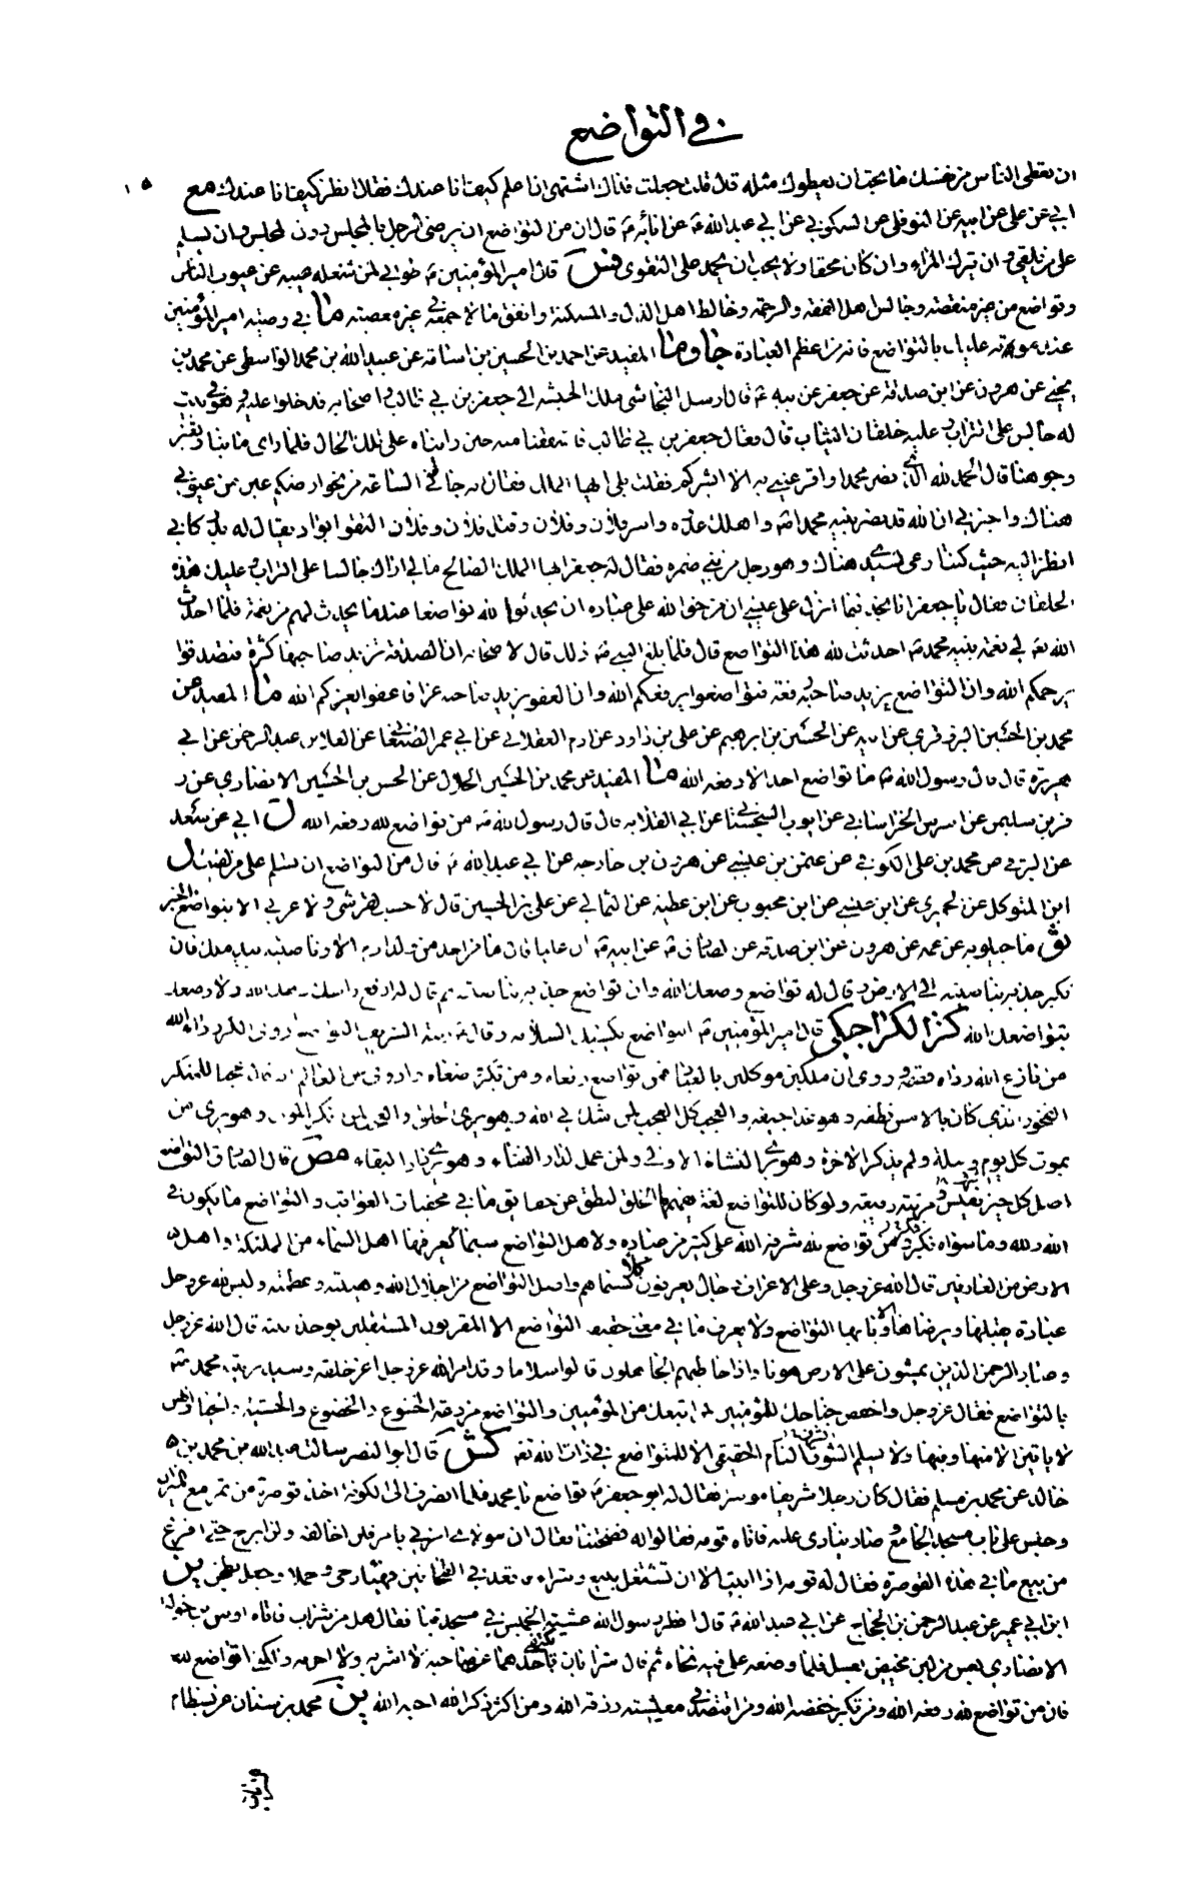 في التواضع
ان تعطي الناس من نفسك ما تحب ان يعطوك مثله قال قلت جعلت فداك اشتهي ان اعلم كيف انا عندك فقال انظر كيف انا عندك مع
ابي عن علي عن ابيه عن النوفلي عن السكوني عن ابي عبد الله عن ابائه قال ان من التواضع ان يرضى الرجل بالمجلس دون المجلس وان يسلم
على من يلقى وان يترك المراء وان كان محقا ولا يحب ان يحمد على التقوى قال امير المؤمنين طوبى لمن شغله عيبه عن عيوب الناس
وتواضع من غير منقصة وجالس اهل الفقه والرحمة وخالط اهل الذل والمسكنة وانفق مالا جمعه في غير معصية ما في وصية امير المؤمنين
عند موته عليك بالتواضع فانه من اعظم العبادة جا وما المفيد عن احمد بن الحسين بن اسامة عن عبيد الله بن محمد الواسطي عن محمد بن
يحيى عن هرون عن ابن صدقة عن جعفر عن ابيه قال ارسل النجاشي ملك الحبشة الى جعفر بن ابي طالب واصحابه فدخلوا عليه وهو في بيت
له جالس على التراب وعليه خلقان الثياب قال فقال جعفر بن ابي طالب فاشفقنا منه حين رايناه على تلك الحال فلما راى ما بنا وتغير
وجوهنا قال الحمد لله الذي نصر محمدا واقر عيني به الا ابشركم فقلت بلى ايها الملك فقال انه جائني الساعة من نحو ارضكم عين من عيوني
هناك واخبرني ان الله قد نصر نبيه محمدا واهلك عدوه واسر فلان وفلان وقتل فلان وفلان التقوا بواد يقال له بدر كاني
انظر اليه حيث كنت ارعى لسيدي هناك وهو رجل من بني ضمرة فقال له جعفر ايها الملك الصالح ما لي اراك جالسا على التراب وعليك هذه
الخلقان فقال يا جعفر انا نجد فيما انزل على عيسى ان من حق الله على عباده ان يحدثوا لله تواضعا عندما يحدث لهم من نعمة فلما احدث
الله لي نعمة بنبيه محمد احدثت لله هذا التواضع قال فلما بلغ النبي ذلك قال لاصحابه ان الصدقة تزيد صاحبها كثرة فتصدقوا
يرحمكم الله وان التواضع يزيد صاحبه رفعة فتواضعوا يرفعكم الله وان العفو يزيد صاحبه عزا فاعفوا يعزكم الله ما المفيد عن
محمد بن الحسين عن الحسين بن ابرهيم عن علي بن داود عن ادم العقلاني عن ابي عمر الصنعاني عن العلاء بن عبد الرحمن عن ابي
هريرة قال قال رسول الله ما تواضع احد الا رفعه الله ما المفيد عن محمد بن الحسين الحلال عن الحسن بن الحسين الانصاري عن ز
فر بن سليمن عن اشرس الخراساني عن ايوب السجستاني عن ابي القلابة قال قال رسول الله من تواضع لله رفعه الله ل ابي عن سعد
عن البرقي عن محمد بن علي الكوفي عن عثمن بن عيسى عن هرون بن خارجه عن ابي عبد الله قال من التواضع ان تسلم على من لقيت ل
ابن المتوكل عن الحميري عن ابن عيسى عن ابن محبوب عن ابن عطية عن الثمالي عن علي بن الحسين قال لا حسب لقرشي ولا عربي الا بتواضع الخبر
ثو ماجيلويه عن عمه عن هرون عن ابن صدقه عن الصادق عن ابيه ان عليا قال ما من احد من ولد ادم الا وناصيته بيد ملك فان
تكبر جذبه بناصيته الى الارض وقال له تواضع وضعك الله وان تواضع جذبه بناصيته ثم قال له ارفع راسك رفعك الله ولا وضعك
بتواضعك لله كنز الكراجكي قال امير المؤمنين التواضع يكسبك السلامة وقال زينة الشريف التواضع وروي الكبر رداء الله
من نازع الله رداه قصمه وروي ان ملكين موكلين بالعباد فمن تواضع رفعاه ومن تكبر وضعاه وروي عن العالم انه قال عجبا للمتكبر
الفخور الذي كان بالامس نطفه وهو غدا جيفه والعجب كل العجب لمن شك في الله وهو يرى الخلق والعجب لمن نكر الموت وهو يرى من
يموت كل يوم وليلة ولم يذكر الاخرة وهو يرى النشاة الاولى ولمن عمل لدار الفناء وهو يرى دار البقاء مص قال الصادق التواضع
اصل كل خير نفيس ومرتبه رفيعه ولو كان للتواضع لغة يفهمها الخلق لنطق عن حقايق ما في مخفيات العواقب والتواضع ما يكون في
الله ولله وما سواه تكبر ومن تواضع لله شرفه الله على كثير من عباده ولاهل التواضع سيماء يعرفها اهل السماء من الملئكة واهل
الارض من العارفين قال الله عز وجل وعلى الاعراف رجال يعرفون كلا بسيماهم واصل التواضع من اجلال الله وهيبته وعظمته وليس لله عز وجل
عبادة يقبلها ويرضاها الا وبابها التواضع ولا يعرف ما في معنى حقيقة التواضع الا المقربون المستقلين بوحدانيته قال الله عز وجل
وعباد الرحمن الذين يمشون على الارض هونا واذا خاطبهم الجاهلون قالوا سلاما وقد امر الله عز وجل اعز خلقه وسيد بريته محمد
بالتواضع فقال عز وجل واخفض جناحك للمؤمنين لمن اتبعك من المؤمنين والتواضع مزرعة الخشوع والخضوع والخشية والحياء وانهن
لا ياتين الا منها وفيها ولا يسلم الشرف التام الحقيقي الا للمتواضع في ذات الله كش قال ابو النصر سالت عبد الله بن محمد بن
خالد عن محمد بن مسلم فقال كان رجلا شريفا موسرا فقال له ابو جعفر تواضع يا محمد فلما انصرف الى الكوفة اخذ قوصرة من تمر مع الميزان
وجلس على باب مسجد الجامع وصار ينادي عليه فاتاه قومه فقالوا له فضحتنا فقال ان مولاي امرني بامر فلن اخالفه ولن ابرح حتى افرغ
من بيع ما في هذه القوصرة فقال له قومه اذا ابيت الا ان تشتغل ببيع وشراء فاقعد في الطحانين فهيا رحى وجملا وجعل يطحن ين
ابن ابي عمير عن عبد الرحمن بن الحجاج عن ابي عبد الله قال افطر رسول الله عشية الخميس في مسجد قبا فقال هل من شراب فاتاه اوس بن خولة
الانصاري بعس من لبن مخيض بعسل فلما وضعه على فيه نحاه ثم قال شرابان يكتفى باحدهما عن صاحبه لا اشربه ولا احرمه ولكني اتواضع لله
فان من تواضع لله رفعه الله ومن تكبر خفضه الله ومن اقتصد في معيشته رزقه الله ومن اكثر ذكر الله احبه الله ين محمد بن سنان عن بسطام